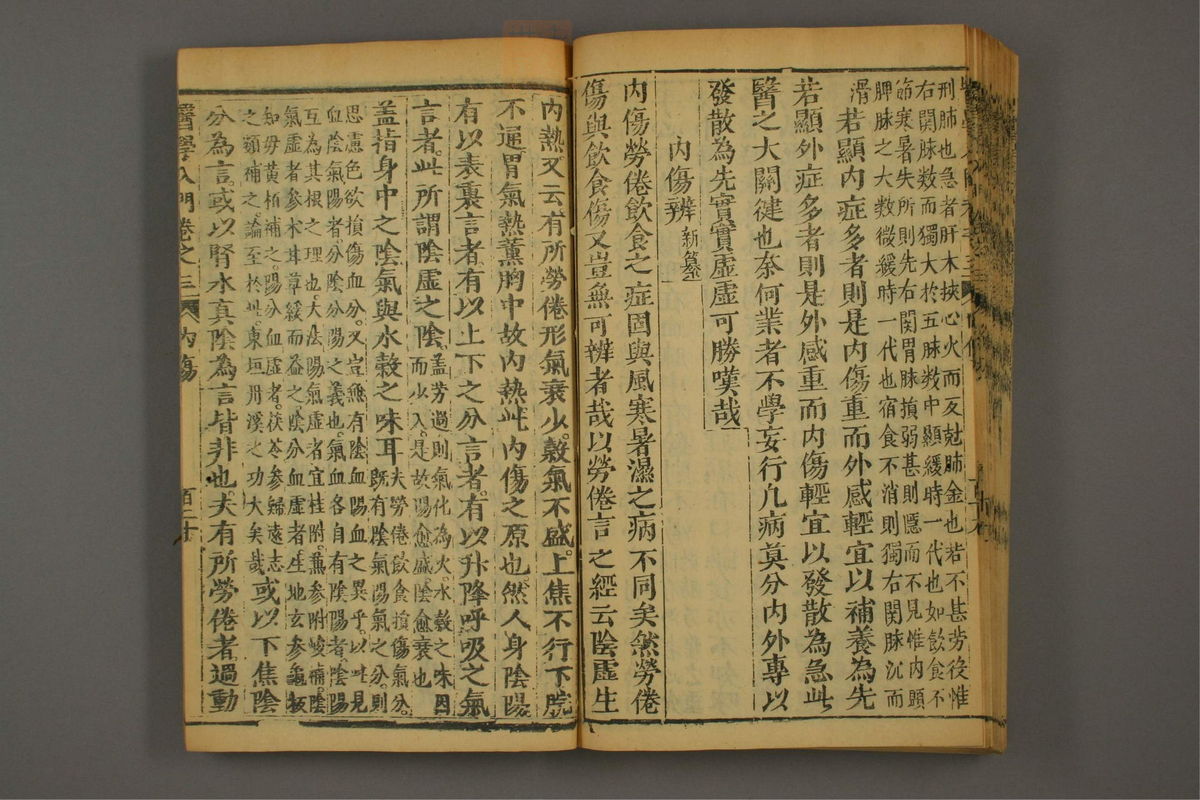 刑肺也急者肝木挾心火而反尅肺金也若不甚勞役惟
右関脉数而獨大於五脉数中顯緩時一代也如飲食不
節寒暑失所則先右関胃脉損弱甚則隱而不見惟内顯
脾脉之大数微緩時一代也宿食不消則獨右関脉沉而
滑
若顯内症多者則是内傷重而外感輕宜以補養為先
若顯外症多者則是外感重而内傷輕宜以發散為急此
醫之大關徤也奈何業者不學妄行凡病莫分内外專以
發散為先實實虚虚可勝嘆哉
内傷辨 新纂
内傷勞倦飲食之症固與風寒暑濕之病不同矣然勞倦
傷與飲食傷又豈無可辨者哉以勞倦言之經云陰虚生
内熱又云有所勞倦形氣衰少。榖氣不盛。上焦不行下脘
不通胃氣熱薰胷中故内熱此内傷之原也。然人身陰陽
有以表裏言者。有以上下之分言者。有以升降呼吸之氣
言者。此所謂陰虚之陰。
蓋芳過則氣化為火。水榖之味因
而少入。是故陽愈盛陰愈衰也
盖指身中之陰氣與水榖之味耳
夫勞倦飲食損傷氣分。
既有陰氣陽氣之分。則
思慮色欲損傷血分。又豈無有陰血陽血之異乎。以此見
血陰氣陽者。分陰分陽之義也。氣血各自有陰陽者。陰陽
互為其根之理也。大法陽氣虚者宜桂附。蒹參附峻補。陰
氣虚者參术耳草緩而益之。陰分血虚者。生地玄參龜板
知母黄栢補之。陽分血虚者。茯苓參歸遠志
之類補之。論至於此。東垣丹溪之功大矣哉
或以下焦陰
分為言。或以腎水真陰為言。皆非也。夫有所勞倦者過動
醫學入門卷之三 内傷 百二十